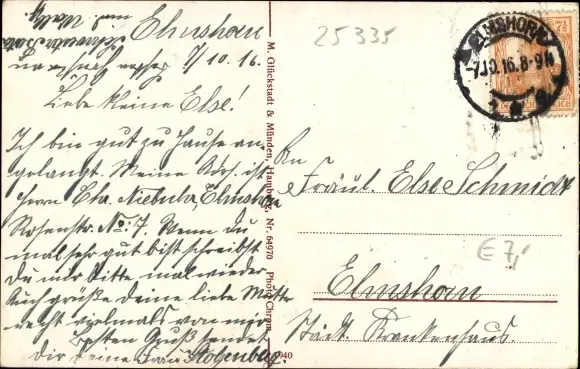 Elmshorn
7/10.16.
Liebe kleine Else!
Ich bin gut zu Hause an-
gelangt. Meine Adr. ist
Herrn Chr. Niebuhr, Elmshorn
Rosenstr. No: 7. Wenn du
mal sehr gut bist schreibst
Du mir bitte mal wieder.
Auch grüße deine liebe Mutter
recht vielmals von mir
Besten Gruß sendet
dir deine Frau Stolzenberg.
M. Glückstadt & Münden, Hamburg, Nr. 64970 Photo-Chrom 1940
25335
ELMSHORN
-7.10.16.8-9N
7½
An
Fräul. Else Schmidt
E 7,
Elmshorn
Städt. Krankenhaus.